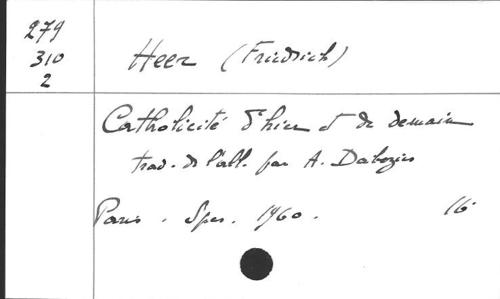 279
310
2
Heer (Friedrich)
Catholicité d'hier et de demain
trad. de l'all. par A. Dabezies
Paris. Spes. 1960. 16°